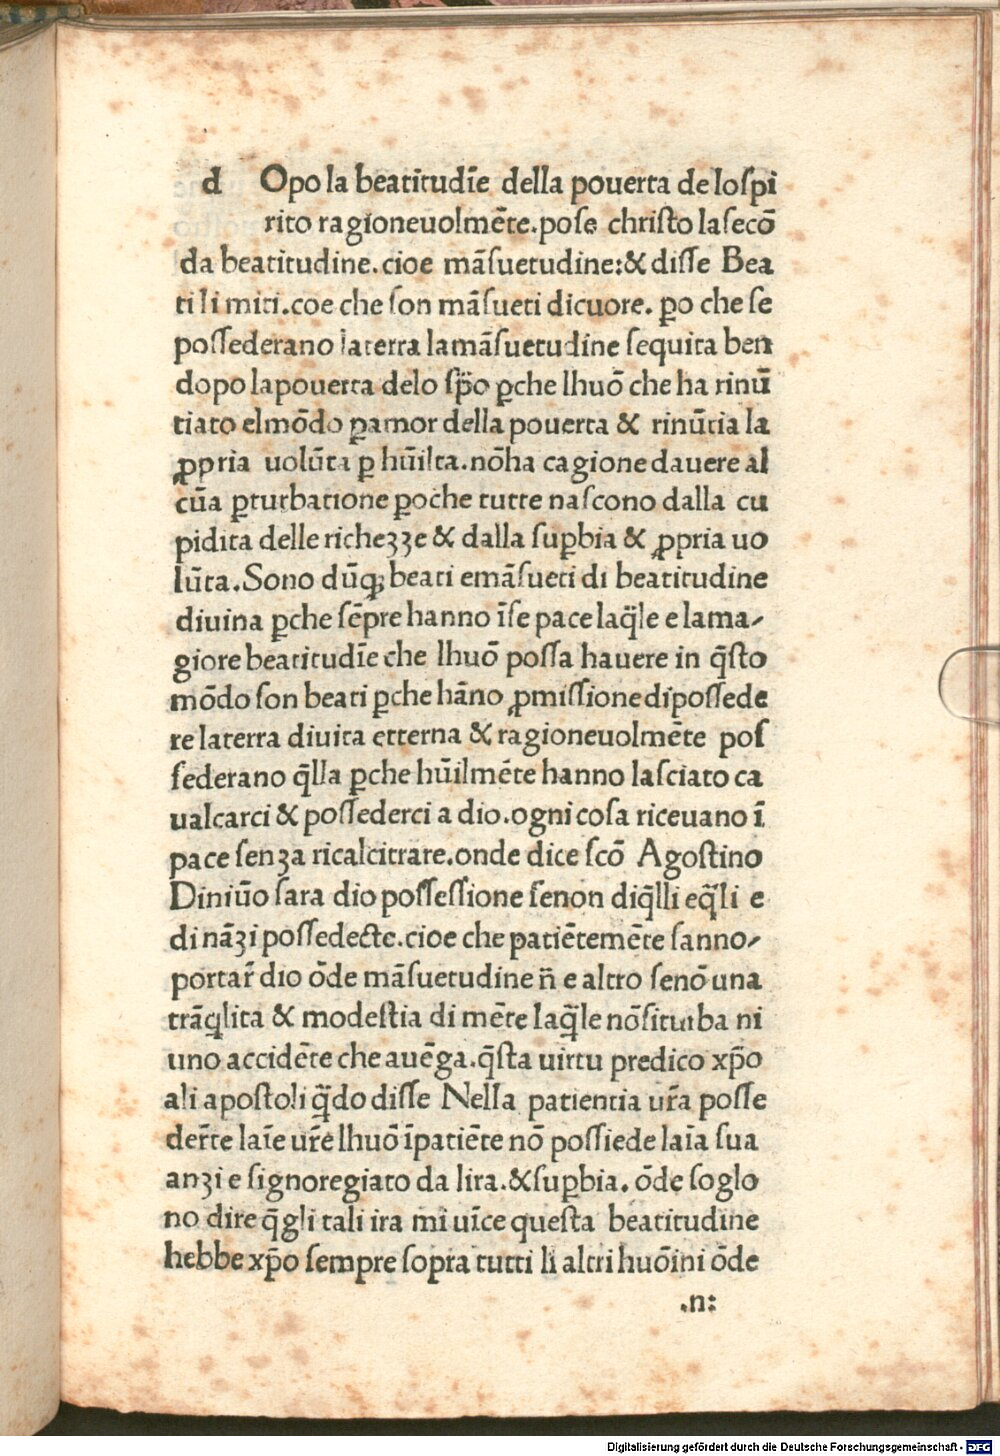 d Opo la beatitudīe della pouerta de lo ſpi
rito ragioneuolmēte.poſe chriſto la ſecō
da beatitudine.cioe māſuetudine:& diſſe Bea
ti li miti.coe che ſon māſueti dicuore. ꝑo che ſe
poſſederano laterra lamāſuetudine ſequita ben
dopo lapouerta delo ſp̄o ꝑche lhuō che ha rinū
tiato elmōdo ꝑamor della pouerta & rinūtia la
ꝓpria uolūta ꝑ hūilta.nōha cagione dauere al
cūa ꝑturbatione ꝑoche tutte naſcono dalla cu
pidita delle richeʒʒe & dalla ſuꝑbia & ꝓpria uo
lūta.Sono dūqꝫ beati emāſueti di beatitudine
diuina ꝑche ſēpre hanno īſe pace laq̄le e lama-
giore beatitudīe che lhuō poſſa hauere in q̄ſto
mōdo ſon beati ꝑche hāno ꝓmiſſione di poſſede
re laterra diuita etterna & ragioneuolmēte poſ
ſederano q̄lla ꝑche hūilmēte hanno laſciato ca
ualcarci & poſſederci a dio.ogni coſa riceuano ī
pace ſenʒa ricalcitrare.onde dice ſcō Agoſtino
Diniūo ſara dio poſſeſſione ſenon diq̄lli eq̄li e
di nāʒi poſſedecte.cioe che patiētemēte ſanno-
portar̄ dio ōde māſuetudine n̄ e altro ſenō una
trāq̄lita & modeſtia di mēte laq̄le nōſiturba ni
uno accidēte che auēga.q̄ſta uirtu predico xp̄o
ali apoſtoli q̄do diſſe Nella patientia ur̄a poſſe
der̄te laīe ur̄e lhuō īpatiēte nō poſſiede laīa ſua
anʒi e ſignoregiato da lira.&ſuꝑbia. ōde ſoglo
no dire q̄gli tali ira mi uīce queſta beatitudine
hebbe xp̄o ſempre ſopra tutti li altri huōini ōde
.n:
Digitalisierung gefördert durch die Deutsche Forschungsgemeinschaft - DFG